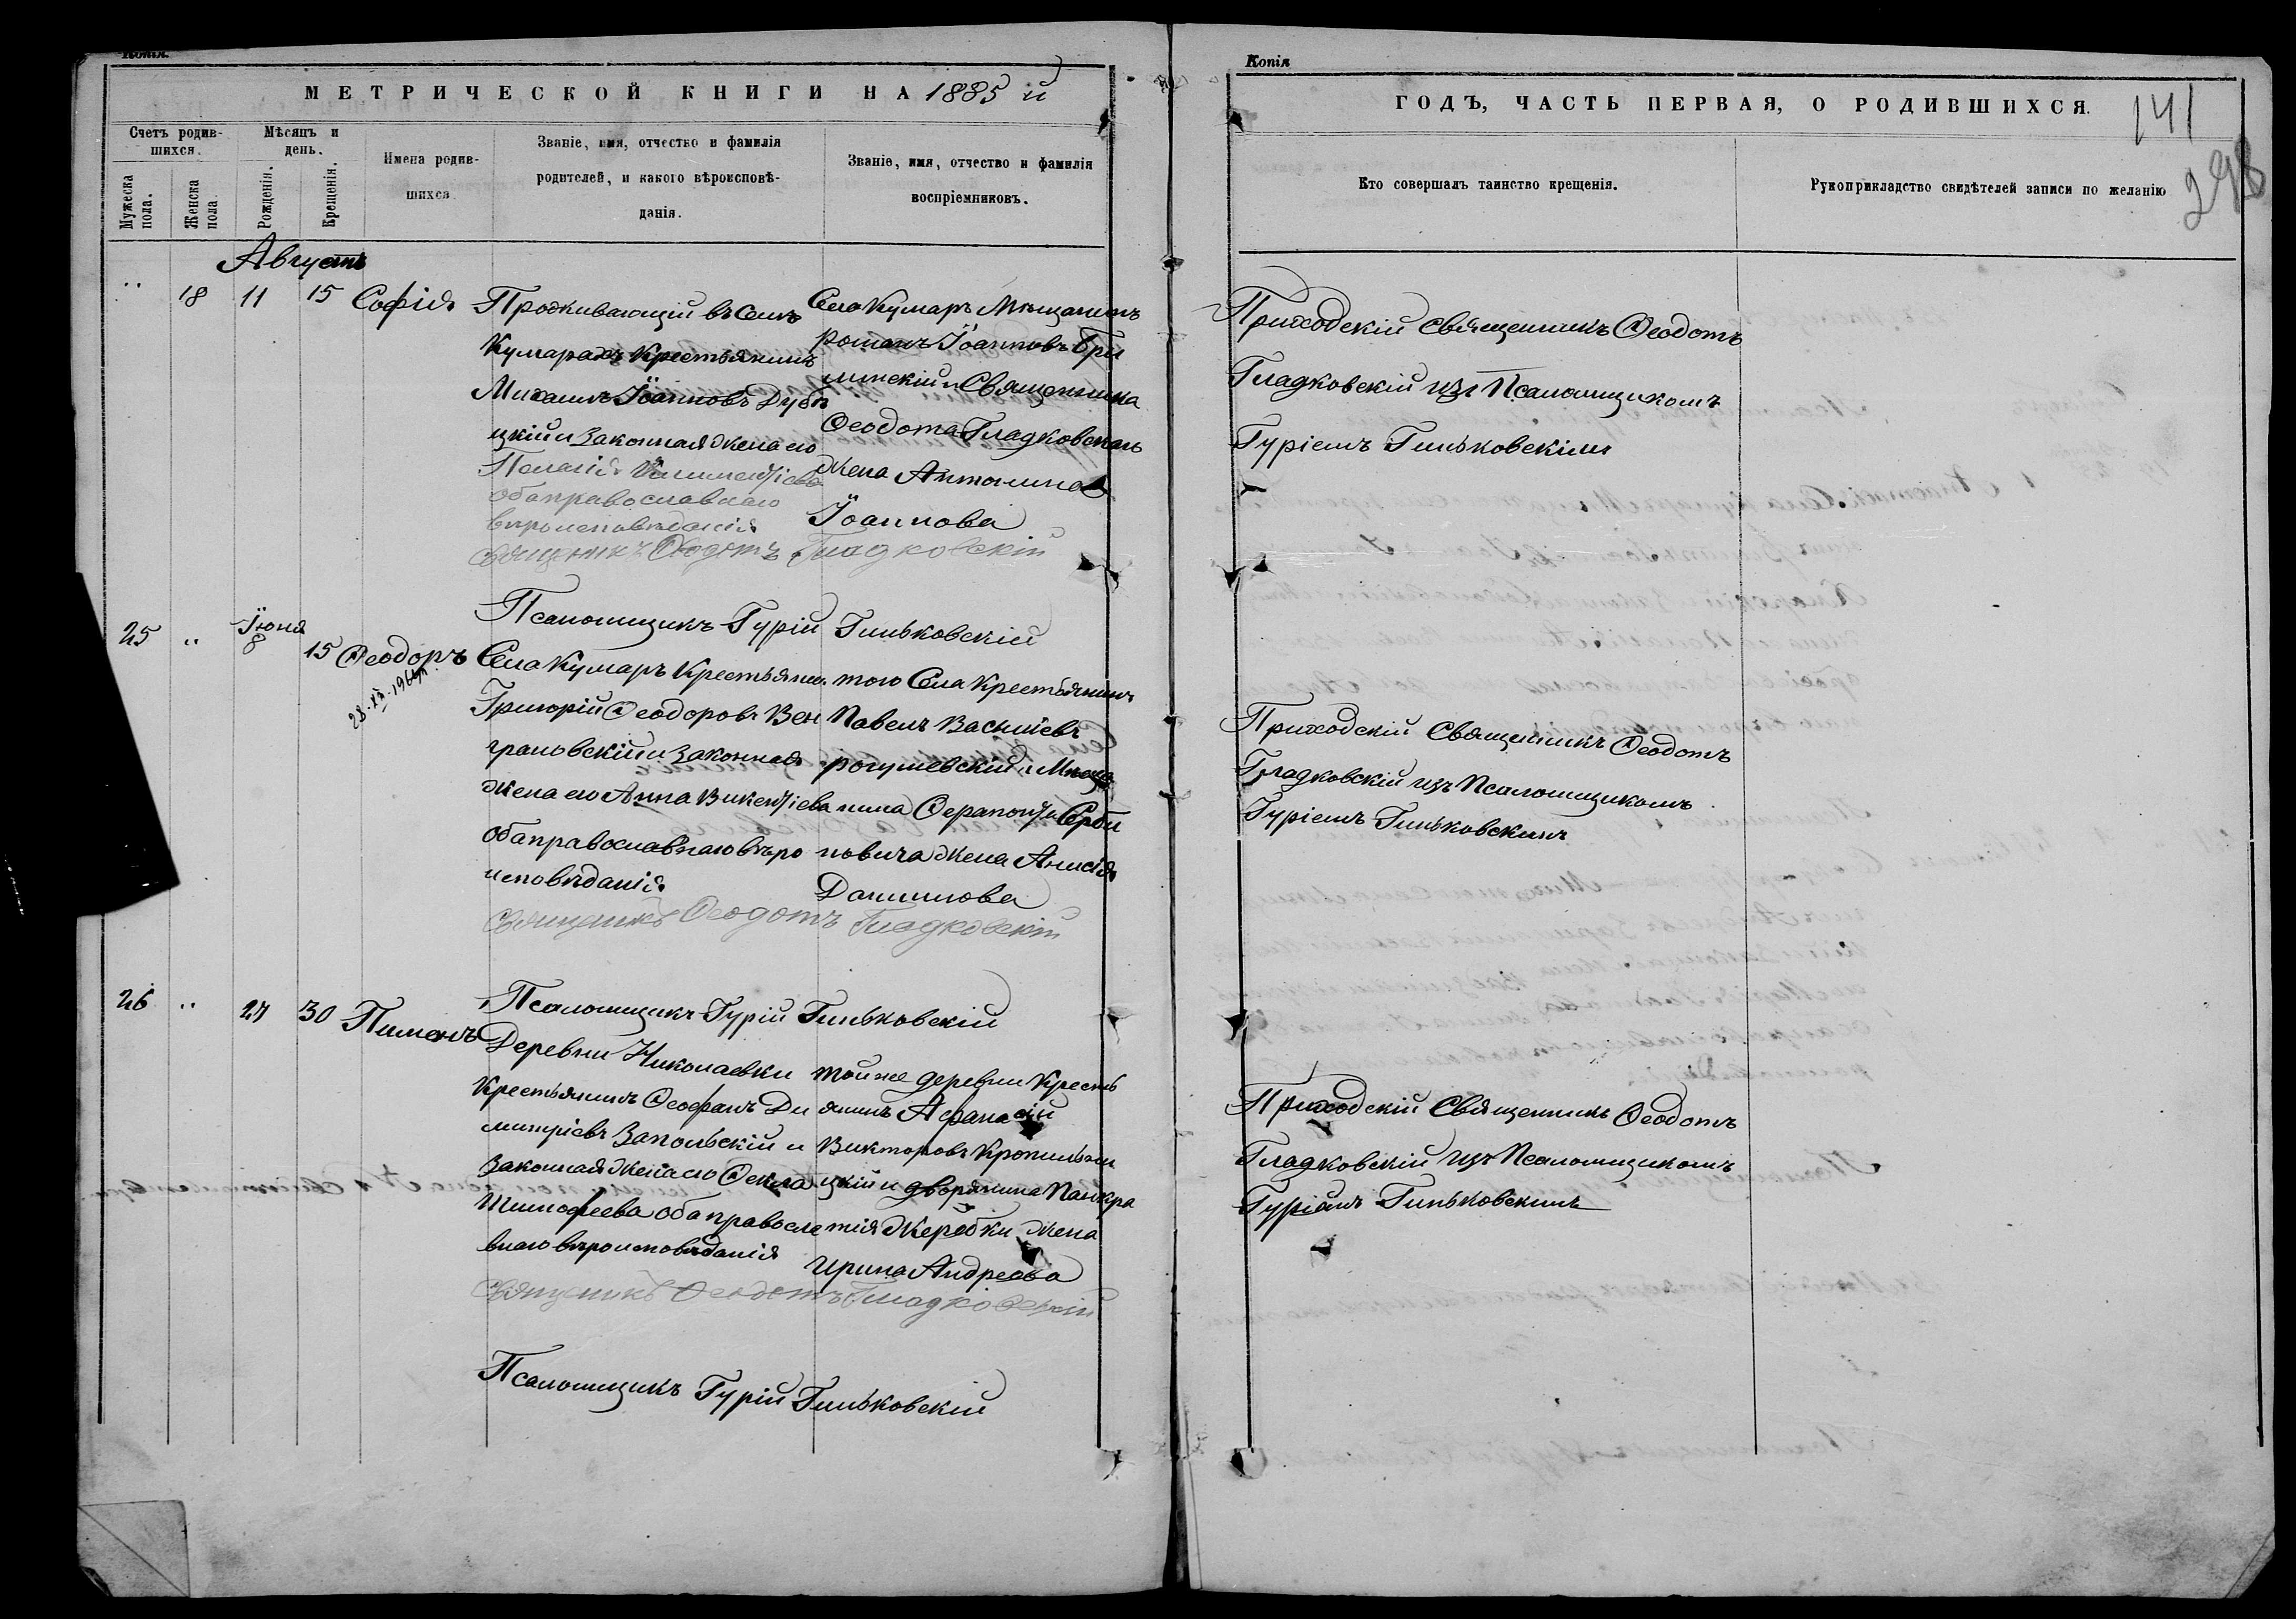 Копія.
МЕТРИЧЕСКОЙ КНИГИ НА 1885 й
Счетъ родив-
шихся.
Мужеска пола.
Женска пола.
Мѣсяцъ и
день.
Рожденія.
Крещенія.
Имена родив-
шихся
Званіе, имя, отчество и фамилія
родителей, и какого вѣроисповѣ-
данія.
Званіе, имя, отчество и фамилія
воспріемниковъ.
Августъ
" 18 11 15 Софія
Проживающій въ Селѣ
Кумарахъ Крестьянинъ
Михаилъ Іоанновъ Дуби
цкій и Законная Жена его
Пелагія
оба православнаго
вѣроисповѣданія
Села Кумаръ Мѣщанинъ
Романъ Іоанновъ
и Священника
Ѳеодота Гладковскаго
Жена Антонина
Іоаннова
Священникъ Ѳеодотъ Гладковскій
Псаломщикъ Гурій Гиньковскій
25 " Іюня 8 15 Ѳеодоръ
Села Кумаръ Крестьянинъ
Григорій Ѳеодоровъ Вен
грановскій и Законная
Жена его Анна Викентіева
оба православнаго вѣро
исповѣданія
того Села Крестьянинъ
Павелъ Василіевъ
рогушевскій и Мѣща
нина Ѳерапонта Серби
новича Жена Анисія
Даниилова
Священникъ Ѳеодотъ Гладковскій
Псаломщикъ Гурій Гиньковскій
26 " 27 30 Пименъ
Деревни Николаевки
Крестьянинъ Ѳеофанъ Ди
митріевъ Запольскій и
Законная Жена его Ѳекла
Тимофеева оба православ
внаго вѣроисповѣданія
той же деревни Кресть
янинъ Афанасій
Викторовъ Кропильни
цкій и дворянина Панкра
тія Жеребки Жена
Ирина Андреева
Священникъ Ѳеодотъ Гладковскій
Псаломщикъ Гурій Гиньковскій
Копія
ГОДЪ, ЧАСТЬ ПЕРВАЯ, О РОДИВШИХСЯ.
141
298
Кто совершалъ таинство крещенія.
Рукоприкладство свидѣтелей записи по желанію
Приходскій Священникъ Ѳеодотъ
Гладковскій изъ Псаломщикомъ
Гуріемъ Гиньковскимъ
Приходскій Священникъ Ѳеодотъ
Гладковскій изъ Псаломщикомъ
Гуріемъ Гиньковскимъ
Приходскій Священникъ Ѳеодотъ
Гладковскій изъ Псаломщикомъ
Гуріемъ Гиньковскимъ